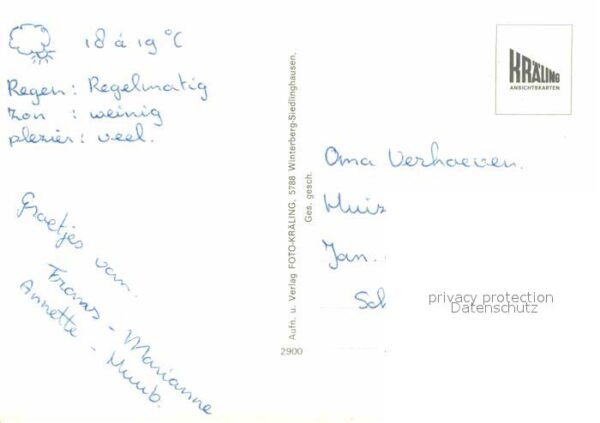 18 á 19 °C
Regen: Regelmatig
zon : weinig
plezier: veel.
Groetjes van.
Frans - Marianne
Annette - Huub.
Aufn. u. Verlag FOTO-KRÄLING, 5788 Winterberg-Siedlinghausen,
Ges. gesch.
2900
KRÄLING
ANSICHTSKARTEN
Oma Verhoeven.
Huiz
Jan.
Sch
privacy protection
Datenschutz